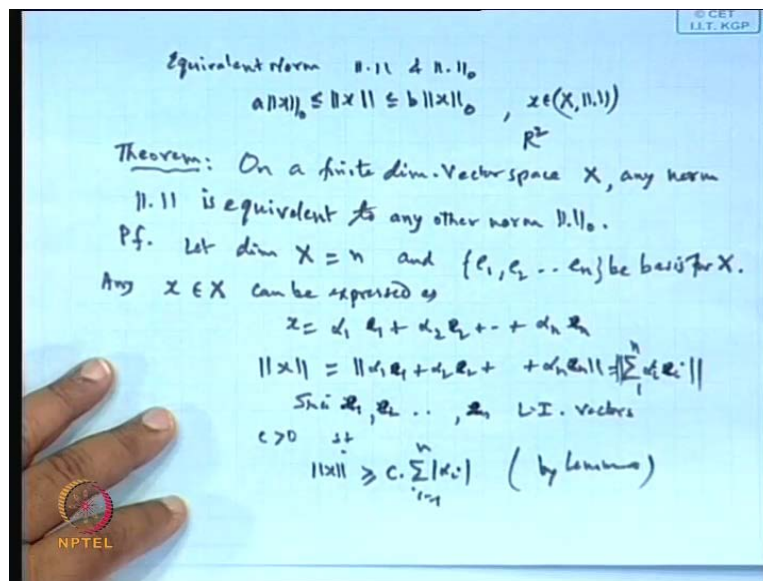 © CET
I.I.T. KGP
Equivalent Norm ||.|| & ||.||₀
a||x||₀ ≤ ||x|| ≤ b||x||₀ , x∈(X, ||.||)
R²
Theorem: On a finite dim. Vector space X, any norm
||.|| is equivalent to any other norm ||.||₀.
Pf. Let dim X = n and {e₁, e₂ .. en} be basis for X.
Any x ∈ X can be expressed as
x = α₁ e₁ + α₂ e₂ + - + αₙ eₙ
||x|| = ||α₁e₁ + α₂e₂ + + αₙeₙ|| = ||∑₁ⁿ αᵢeᵢ||
Since e₁, e₂ .. , eₙ L.I. vectors
c > 0 st
||x|| ≥ c. ∑ᵢ₌₁ⁿ |αᵢ| (by Lemma)
NPTEL